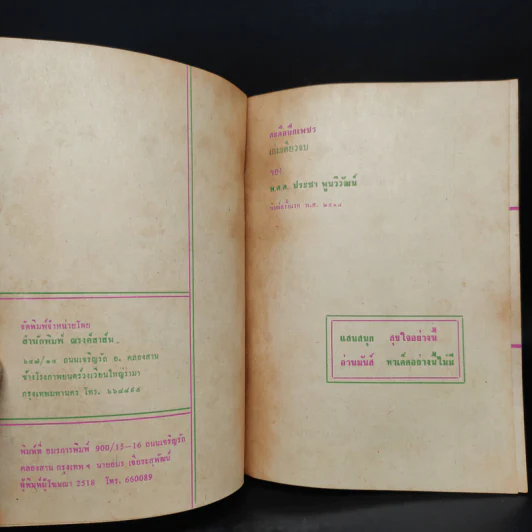 จัดพิมพ์จำหน่ายโดย
สำนักพิมพ์ ณรงค์สาส์น
ถนนเจริญรัถ อ. คลองสาน
ข้างโรงภาพยนตร์วงเวียนใหญ่รามา
กรุงเทพมหานคร โทร. ๖๘๔๔๕๕
พิมพ์ที่ อมรการพิมพ์ 900/15-16 ถนนเจริญรัถ
คลองสาน กรุงเทพ ฯ นายสมร เชิยระสุพัฒน์
ผู้พิมพ์ผู้โฆษณา 2518 โทร. 660089
เล่มเดียวจบ
ของ
พ.ต.ต. ประชา พูนวิวัฒน์
พิมพ์ครั้งแรก พ.ศ. ๒๕๑๘
แสนสนุก สุขใจอย่างนี้
อ่านมันส์ หาเด็ดอย่างนี้ไม่มี